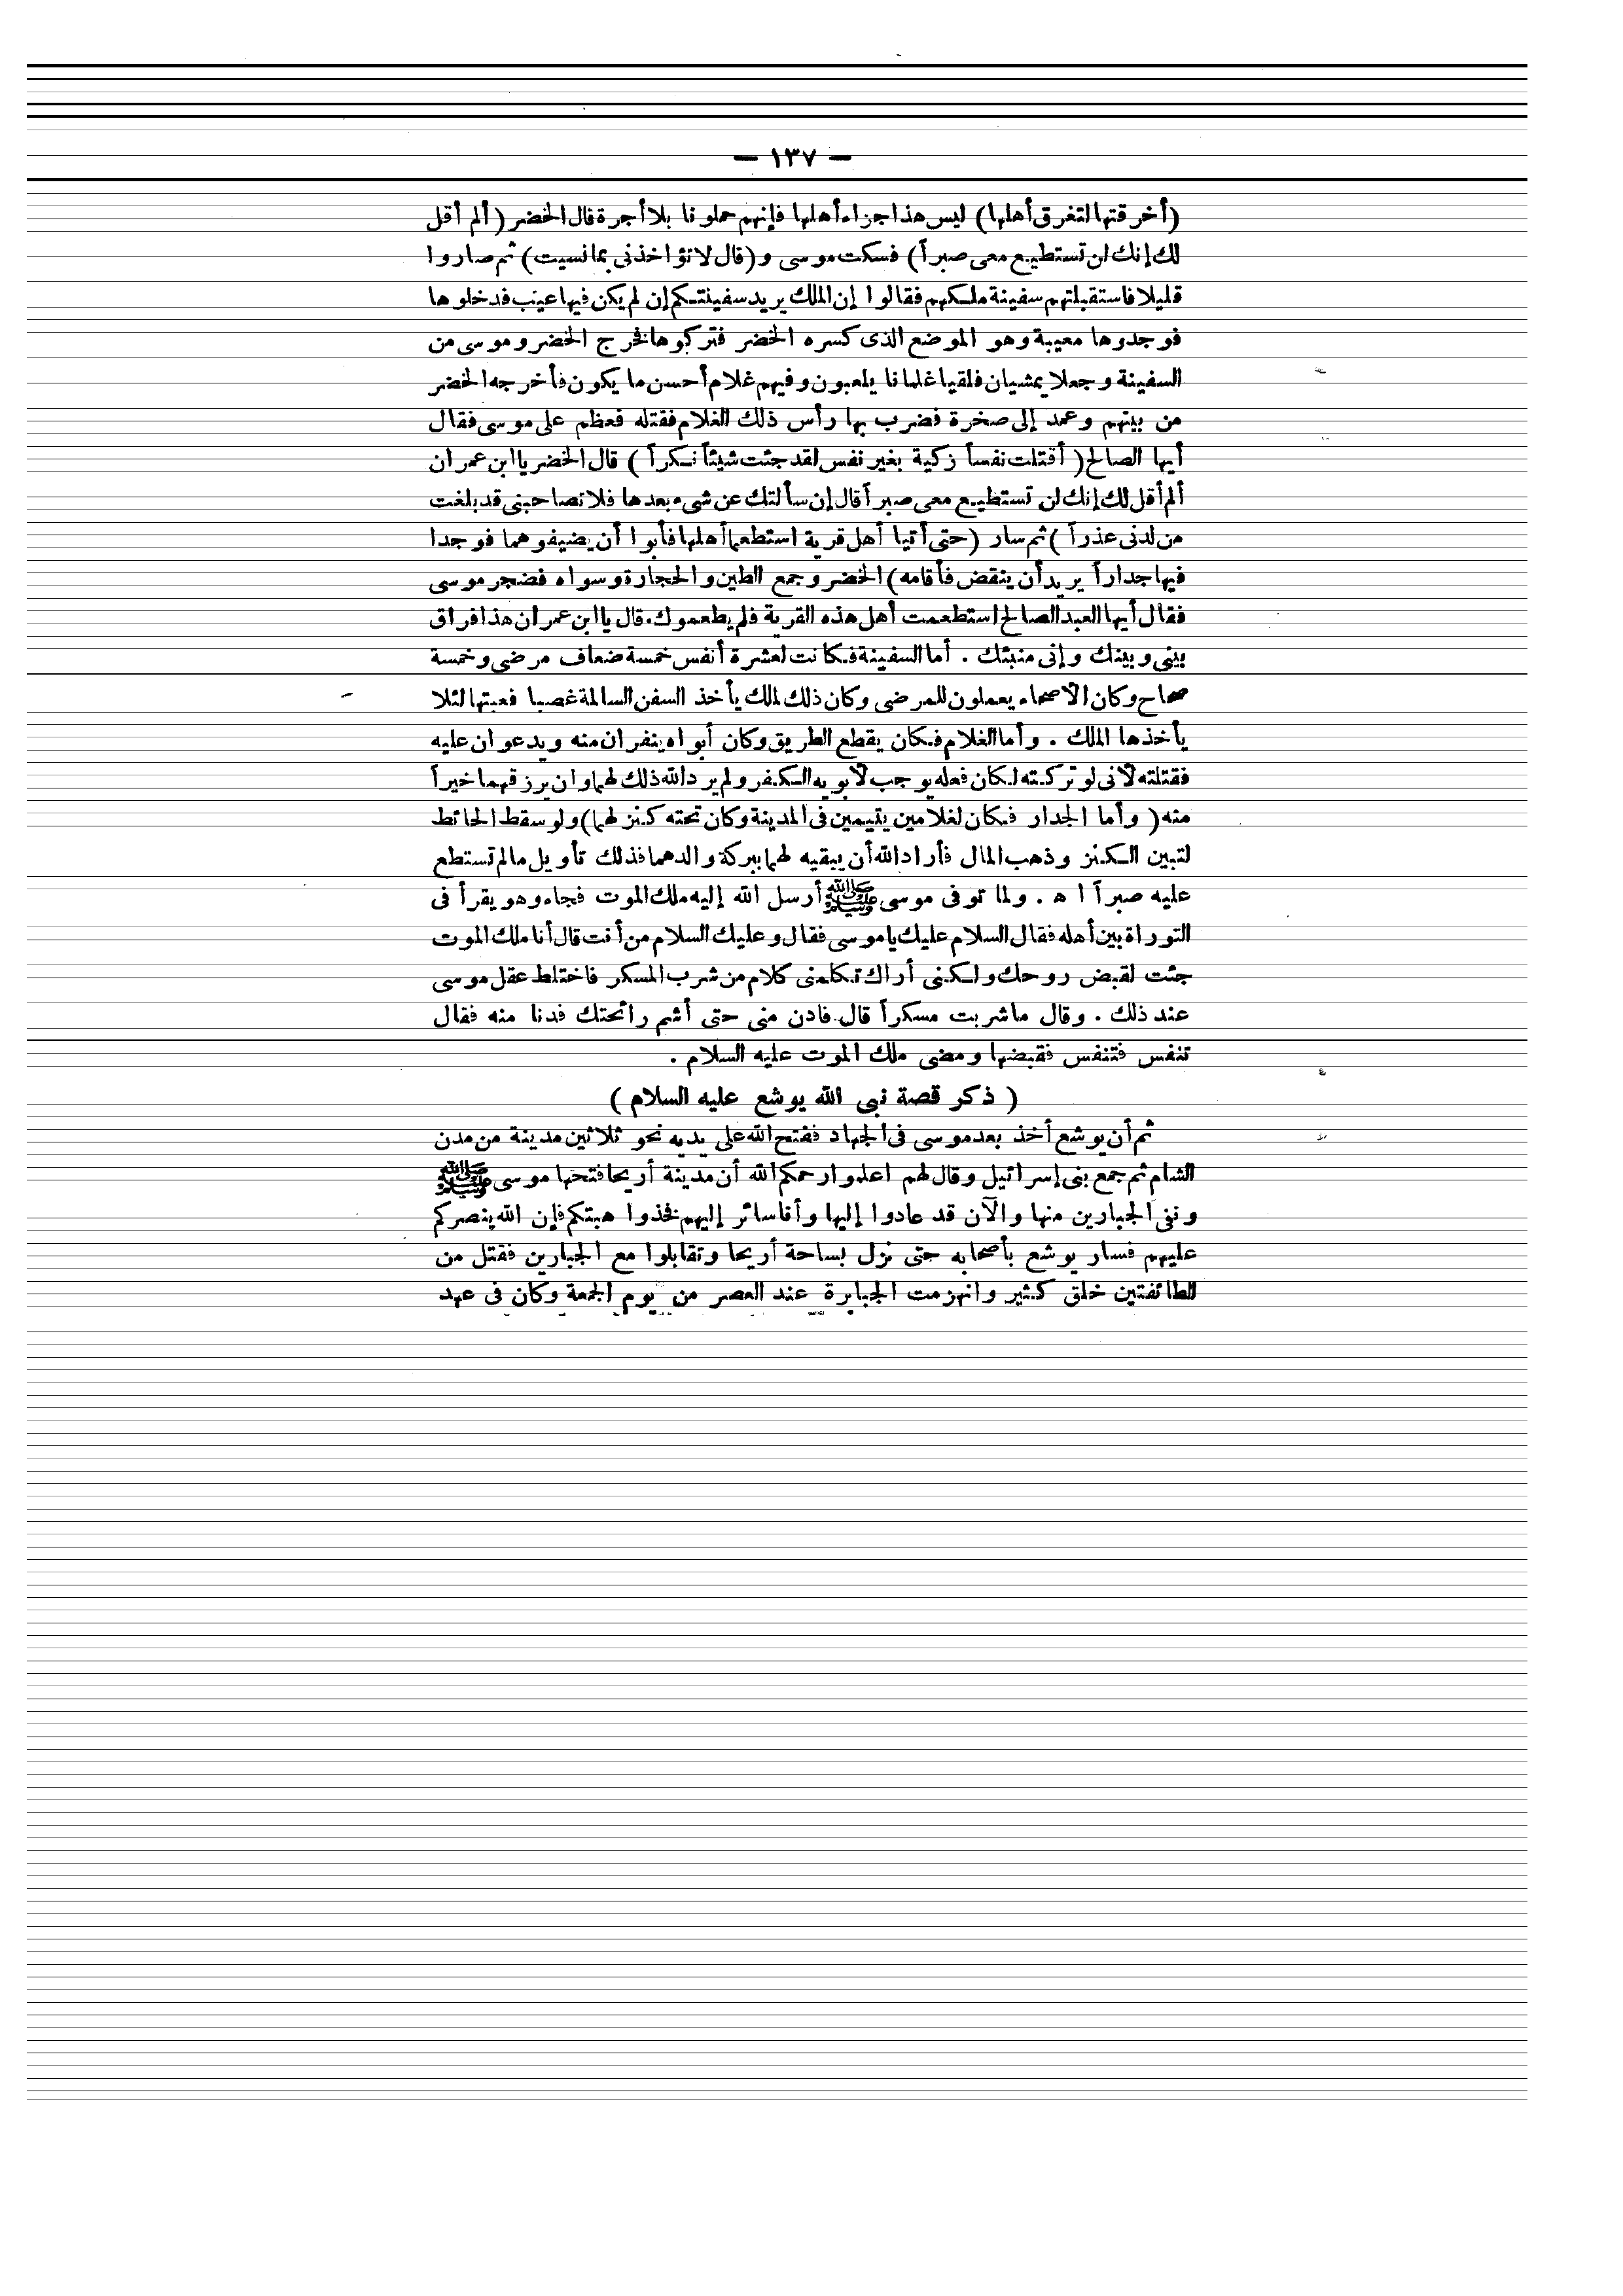 — ١٣٧ —
(أخرقتها لتغرق أهلها) ليس هذا جزاء أهلها فإنهم حملونا بلا أجرة قال الخضر (ألم أقل
لك إنك لن تستطيع معى صبراً) فسكت موسى و(قال لا تؤاخذنى بما نسيت) ثم صاروا
قليلا فاستقبلتهم سفينة ملكهم فقالوا إن الملك يريد سفينتكم إن لم يكن فيها عيب فدخلوها
فوجدوها معيبة وهو الموضع الذى كسره الخضر فتركوها فخرج الخضر وموسى من
السفينة وجعلا يمشيان فلقيا غلمانا يلعبون وفيهم غلام أحسن ما يكون فأخرجه الخضر
من بينهم وعمد إلى صخرة فضرب بها رأس ذلك الغلام فقتله فعظم على موسى فقال
أيها الصالح ( أقتلت نفساً زكية بغير نفس لقد جئت شيئاً نكراً ) قال الخضر يا ابن عمران
ألم أقل لك إنك لن تستطيع معى صبراً قال إن سألتك عن شىء بعدها فلا تصاحبنى قد بلغت
من لدنى عذراً ) ثم سار (حتى أتيا أهل قرية استطعما أهلها فأبوا أن يضيفوهما فوجدا
فيها جداراً يريد أن ينقض فأقامه) الخضر وجمع الطين والحجارة وسواه فضجر موسى
فقال أيها العبد الصالح استطعمت أهل هذه القرية فلم يطعموك. قال يا ابن عمران هذا فراق
بينى وبينك وإنى منبئك . أما السفينة فكانت لعشرة أنفس خمسة ضعاف مرضى وخمسة
صحاح وكان الأصحاء يعملون للمرضى وكان ذلك الملك يأخذ السفن السالمة غصبا فعبتها لئلا
يأخذها الملك . وأما الغلام فكان يقطع الطريق وكان أبواه ينفران منه ويدعوان عليه
فقتلته لأنى لو تركته لكان فعله يوجب لأبويه الكفر ولم يرد الله ذلك لهما وان يرزقهما خيراً
منه ( وأما الجدار فكان لغلامين يتيمين فى المدينة وكان تحته كنز لهما) ولو سقط الحائط
لتبين الكنز وذهب المال فأراد الله أن يبقيه لهما ببركة والدهما فذلك تأويل مالم تستطع
عليه صبراً ا ه . ولما توفى موسى ﷺ أرسل الله إليه ملك الموت فجاء وهو يقرأ فى
التوراة بين أهله فقال السلام عليك يا موسى فقال وعليك السلام من أنت قال أنا ملك الموت
جئت لقبض روحك ولكنى أراك تكلمنى كلام من شرب المسكر فاختلط عقل موسى
عند ذلك . وقال ما شربت مسكراً قال فادن منى حتى أشم رائحتك فدنا منه فقال
تنفس فتنفس فقبضها ومضى ملك الموت عليه السلام .
( ذكر قصة نبى الله يوشع عليه السلام )
ثم أن يوشع أخذ بعد موسى فى الجهاد ففتح الله على يديه نحو ثلاثين مدينة من مدن
الشام ثم جمع بنى إسرائيل وقال لهم اعلموا رحمكم الله أن مدينة أريحا فتحها موسى ﷺ
ونفى الجبارين منها والآن قد عادوا إليها وأنا سائر إليهم فخذوا هبتكم فإن الله ينصركم
عليهم فسار يوشع بأصحابه حتى نزل بساحة أريحا وتقابلوا مع الجبارين فقتل من
الطائفتين خلق كثير وانهزمت الجبابرة عند العصر من يوم الجمعة وكان فى عهد